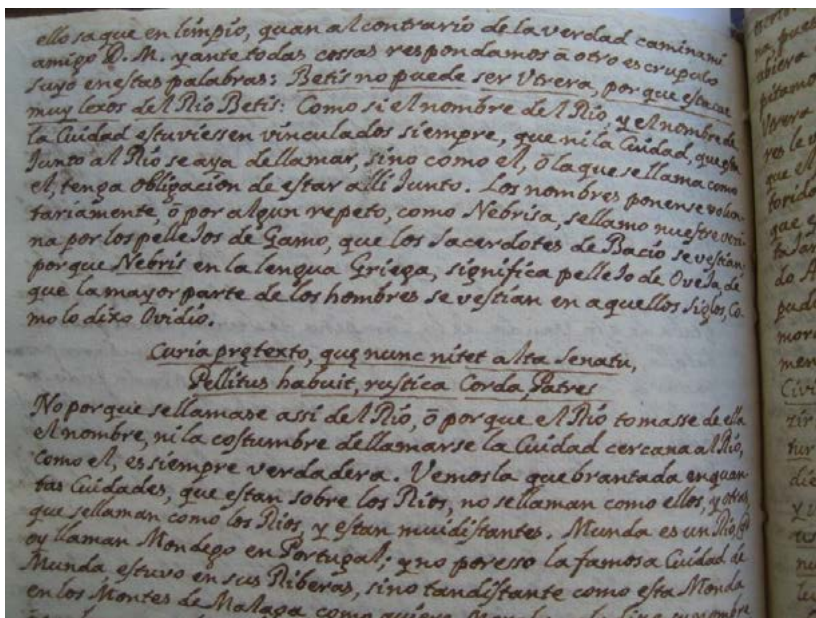 ello saque en limpio, quan al contrario de la verdad camina mi
amigo D. M. y ante todas cossas respondamos à otro escrupulo
suyo en estas palabras: Betis no puede ser Vtrera, porque esta cae
muy lexos del Rio Betis: Como si el nombre del Rio, y el nombre de
la Ciudad estuviessen vinculados siempre, que ni la Ciudad, que esta
Junto al Rio se aya dellamar, sino como el, ò la que se llama como
el, tenga obligacion de estar alli Junto. Los nombres ponense volun-
tariamente, ò por algun repeto, como Nebrisa, sellamo nuestre veci-
na por los pelleJos de Gamo, que los Sacerdotes de Bacio se vestian,
porque Nebris en la lengua Griega, significa pelleJo de OveJa, de
que la mayor parte de los hombres se vestian en aquellos siglos, Co-
mo lo dixo Ovidio.
Curia pretexto, quę nunc nitet alta Senatu,
Pellitus habuit, rustica Corda, Patres
No porque sellamase assi del Rio, ò porque el Rio tomasse de ella
el nombre, ni la costumbre dellamarse la Ciudad cercana al Rio,
como el, es siempre verdadera. Vemosla quebrantada en quan-
tas Ciudades, que estan sobre los Rios, no sellaman como ellos, y otras
que sellaman como los Rios, y estan mui distantes. Munda es un Rio,
oy llaman Mondego en Portugal; y no poresso la famosa Ciudad de
Munda estuvo en sus Riberas, sino tan distante como esta Monda
en los Montes de Malaga como quiere